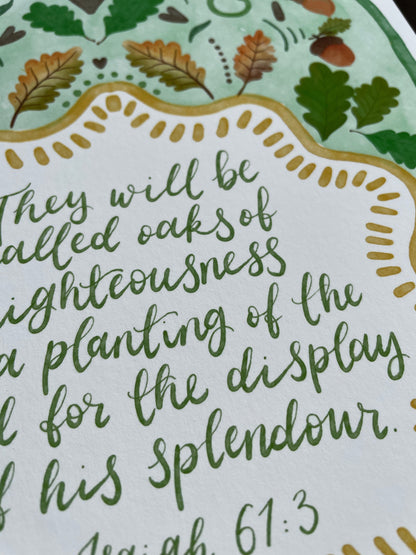 They will be
called oaks of
righteousness
a planting of the
for the display
of his splendour.
Isaiah 61:3